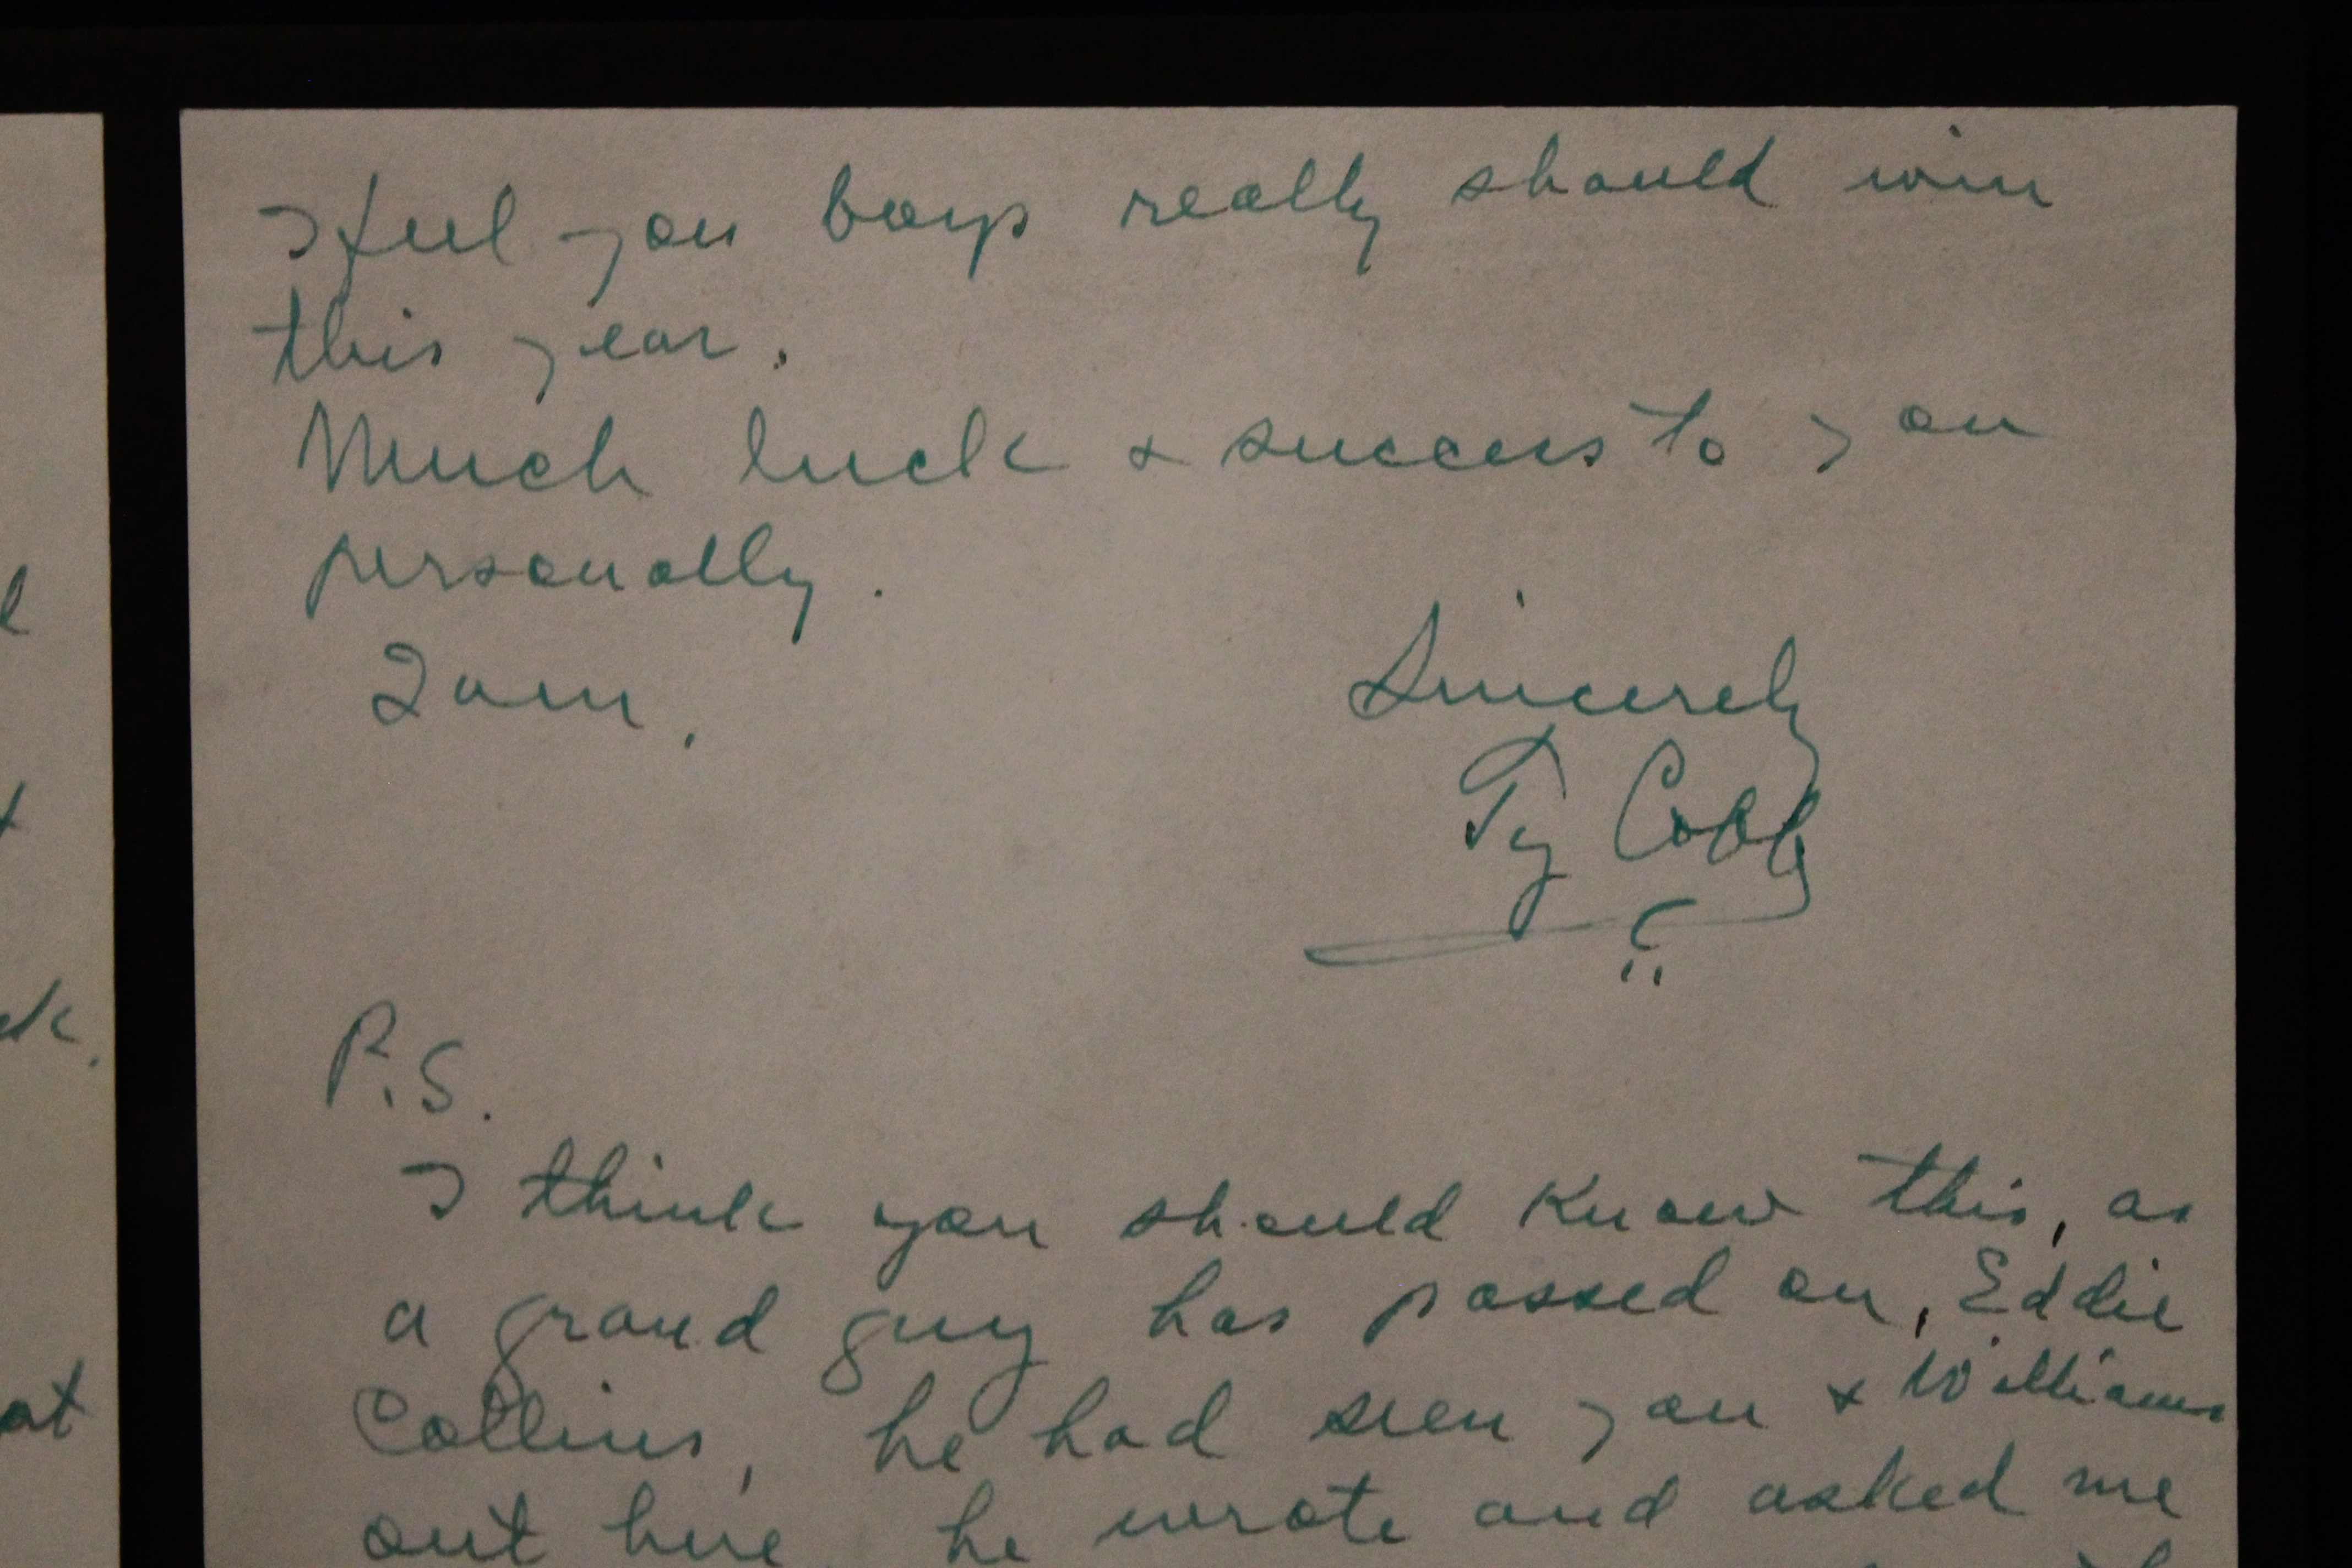 l
t
ck.
at
I feel you boys really should win
this year.
Much luck & success to you
personally.
I am,
Sincerely
Ty Cobb
P.S.
I think you should know this, as
a grand guy has passed on, Eddie
Collins, he had seen you & Williams
out here, he wrote and asked me